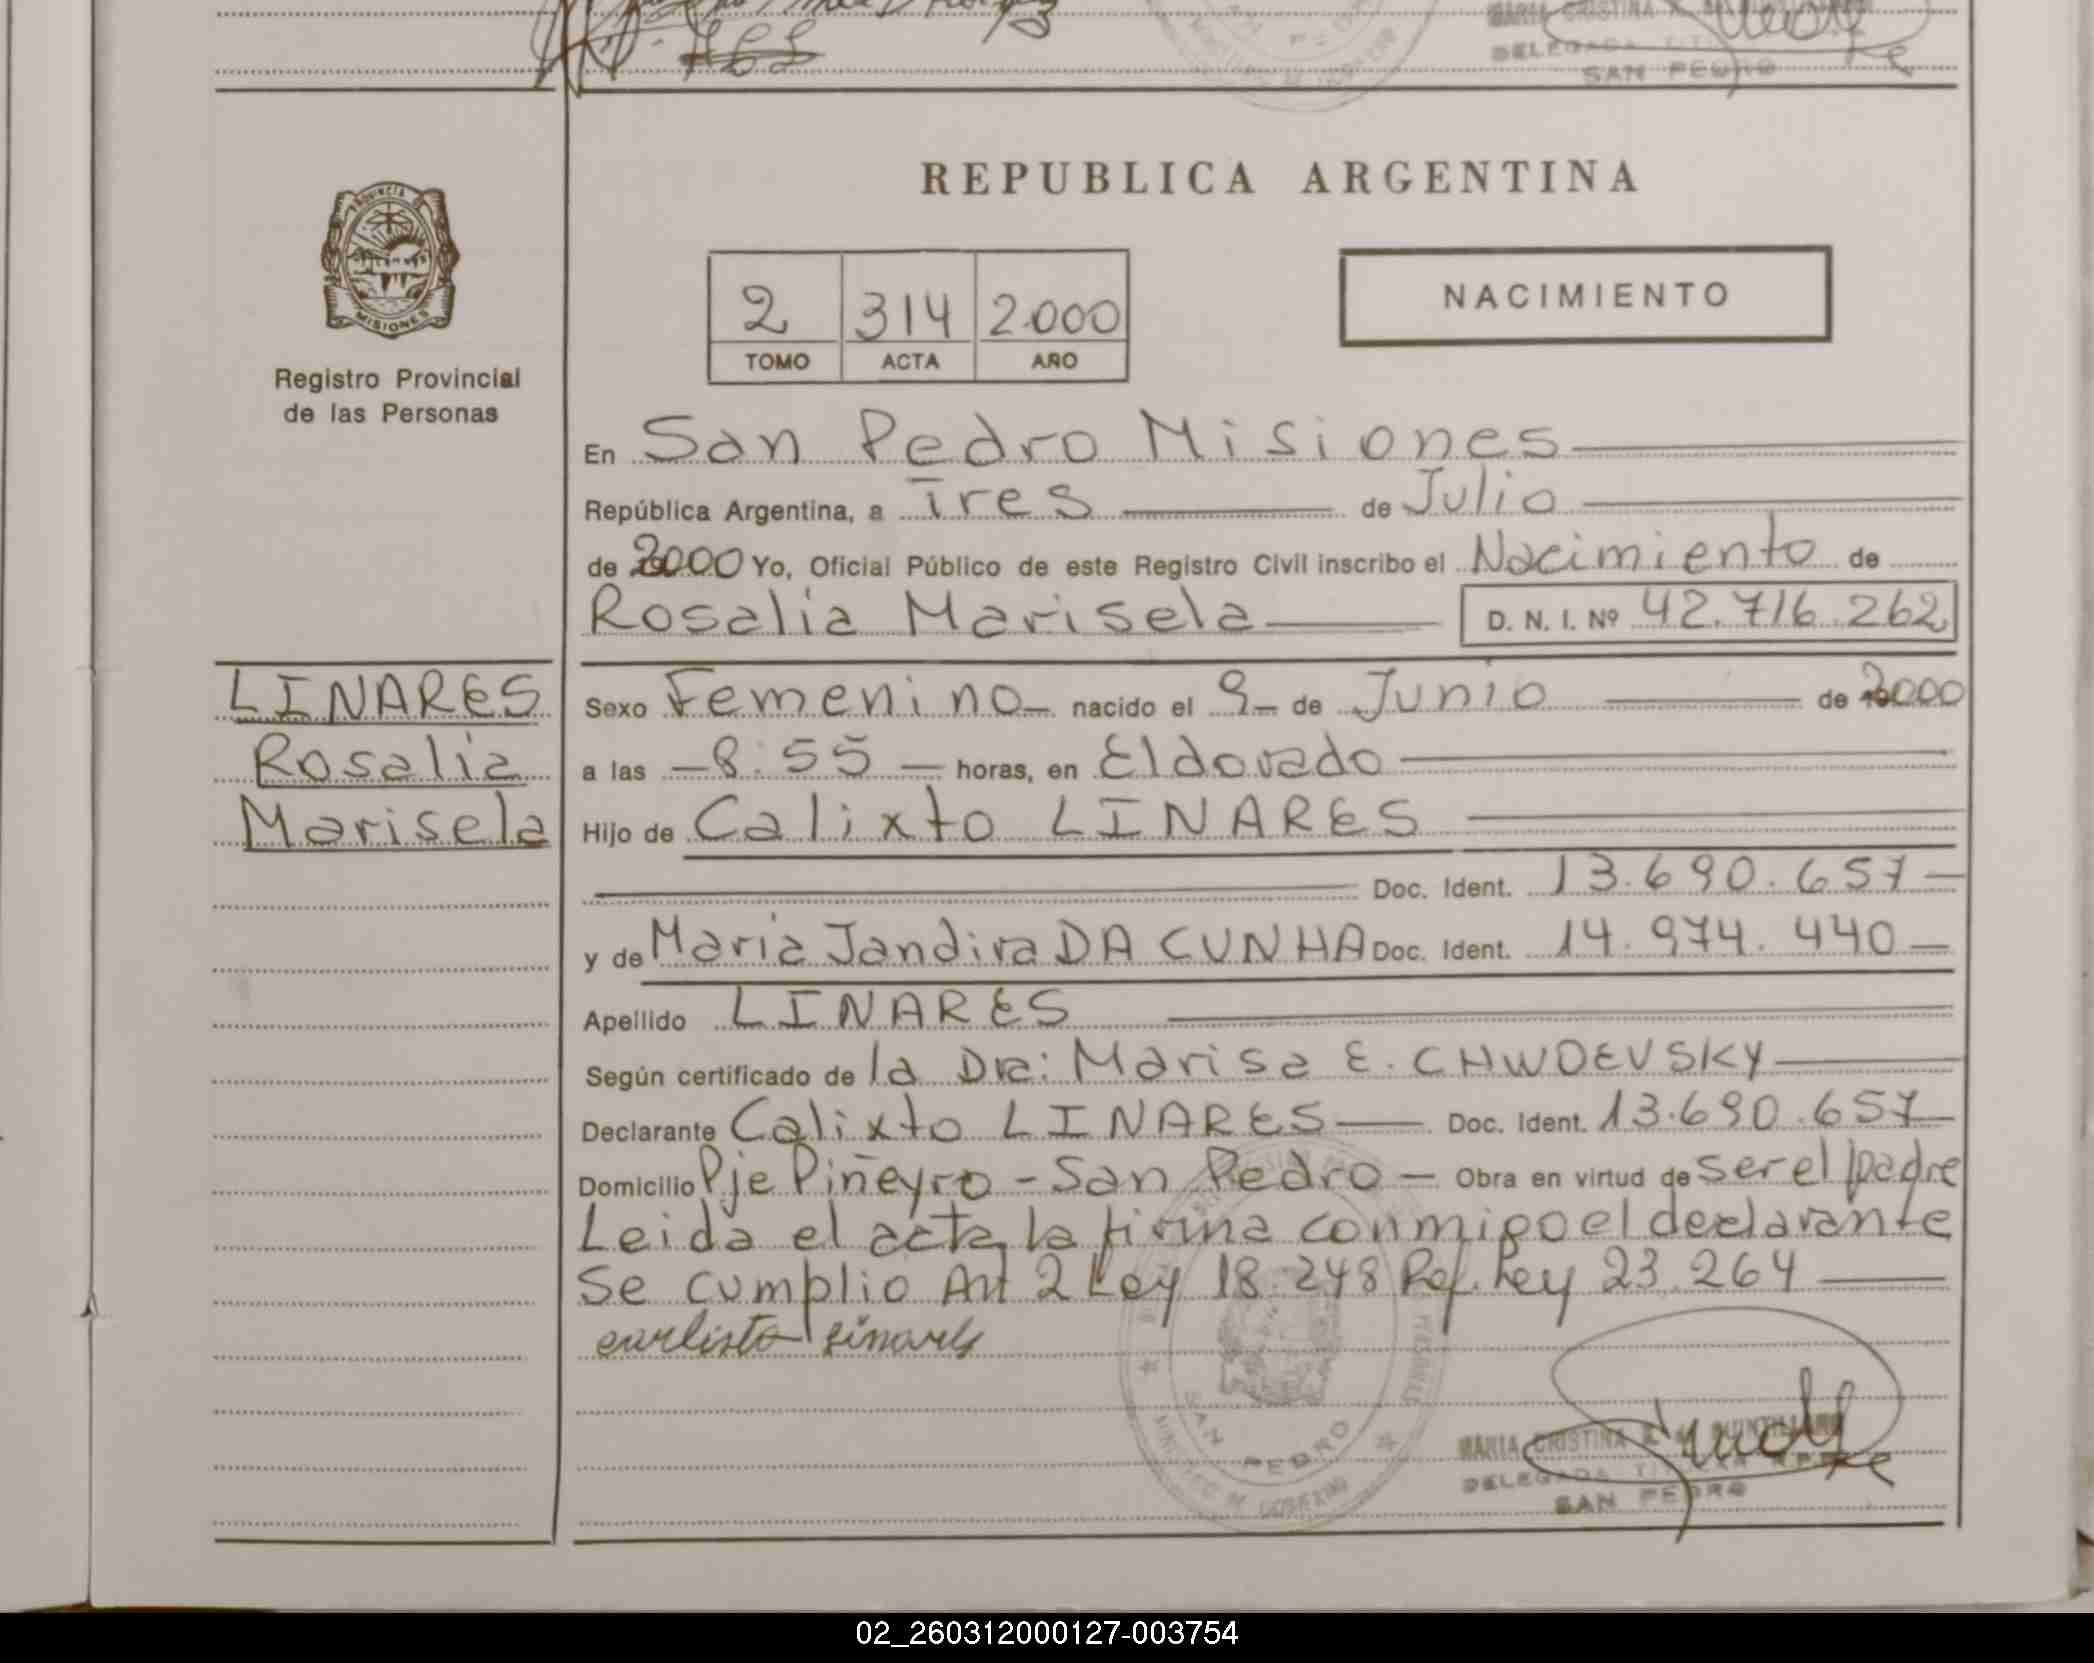 SAN PEDRO
REPUBLICA ARGENTINA
PROVINCIA DE
MISIONES
Registro Provincial
de las Personas
2 314 2.000
TOMO ACTA AÑO
NACIMIENTO
En San Pedro Misiones
República Argentina, a Tres de Julio
de 2000 Yo, Oficial Público de este Registro Civil inscribo el Nacimiento de
Rosalia Marisela D. N. I. Nº 42.716.262
LINARES
Rosalia
Marisela
Sexo Femenino nacido el 9 de Junio de 2000
a las 8:55 horas, en Eldorado
Hijo de Calixto LINARES
Doc. Ident. 13.690.657
y de Maria Jandira DA CUNHA Doc. Ident. 14.974.440
Apellido LINARES
Según certificado de la Dra: Marisa E. CHWDEVSKY
Declarante Calixto LINARES Doc. Ident. 13.690.657
Domicilio Pje Piñeyro - San Pedro - Obra en virtud de ser el padre
Leida el acta la firma conmigo el declarante
Se cumplio Art 2 Ley 18.248 Ref. Ley 23.264
carlisto linares
SAN PEDRO
MARIA CRISTINA
DELEGADA TITULAR
SAN PEDRO
02_260312000127-003754